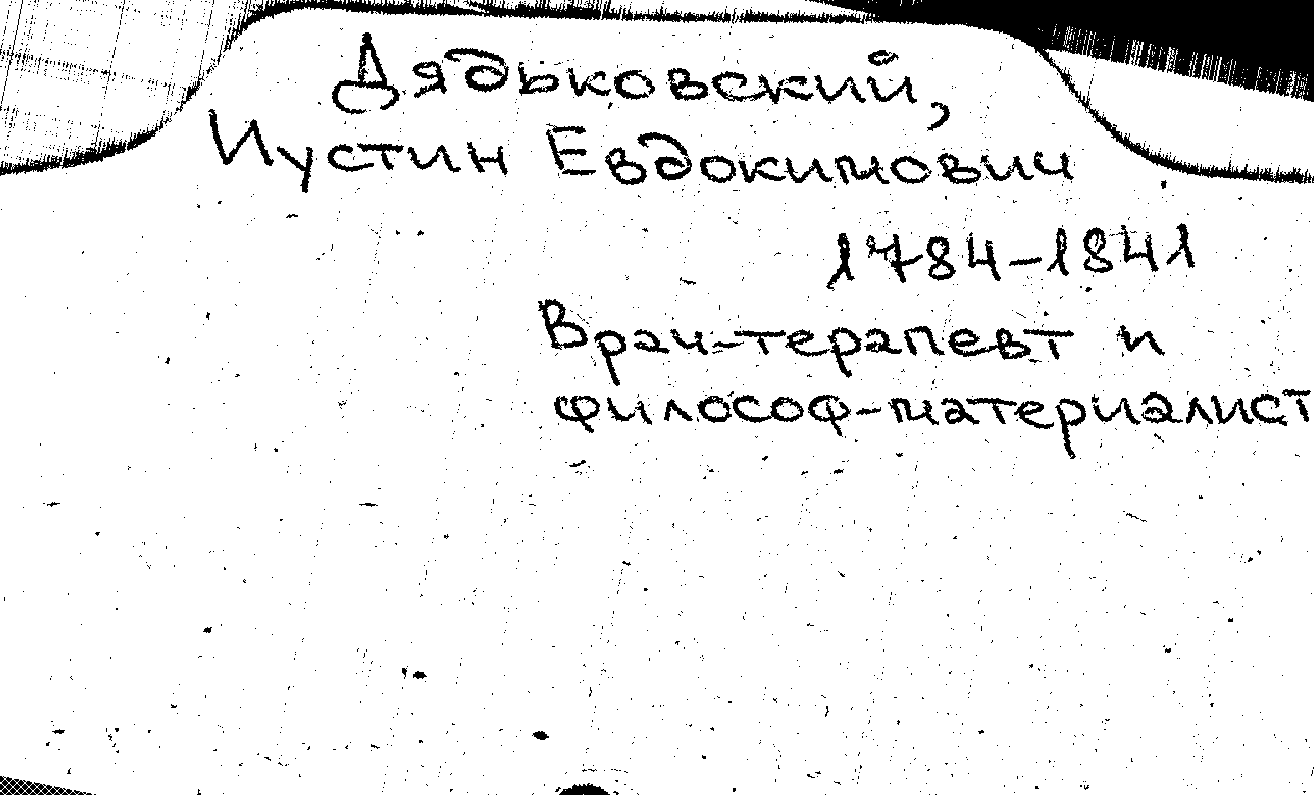 Дядьковский,
Иустин Евдокимович
1784-1841
Врач-терапевт и
философ-материалист